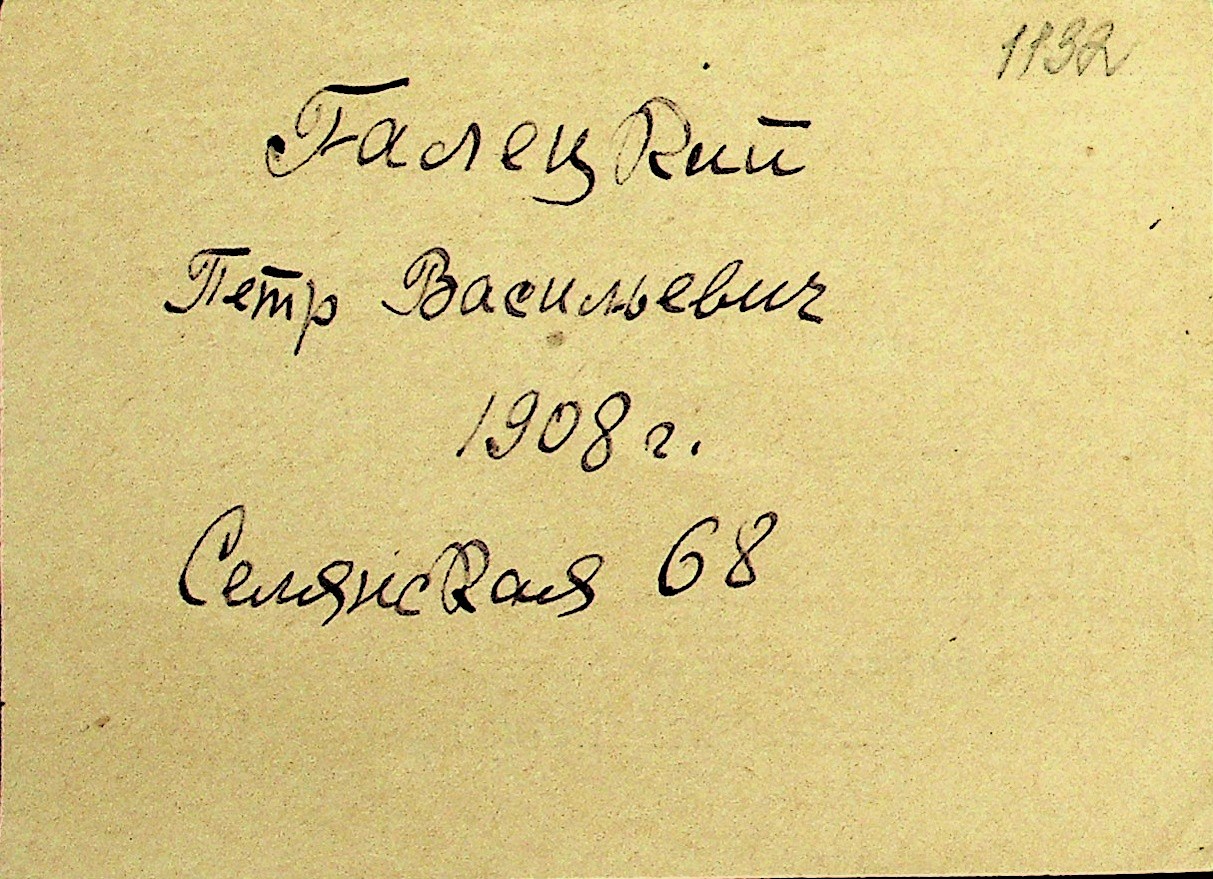 1132
Галецкий
Петр Васильевич
1908 г.
Селянская 68